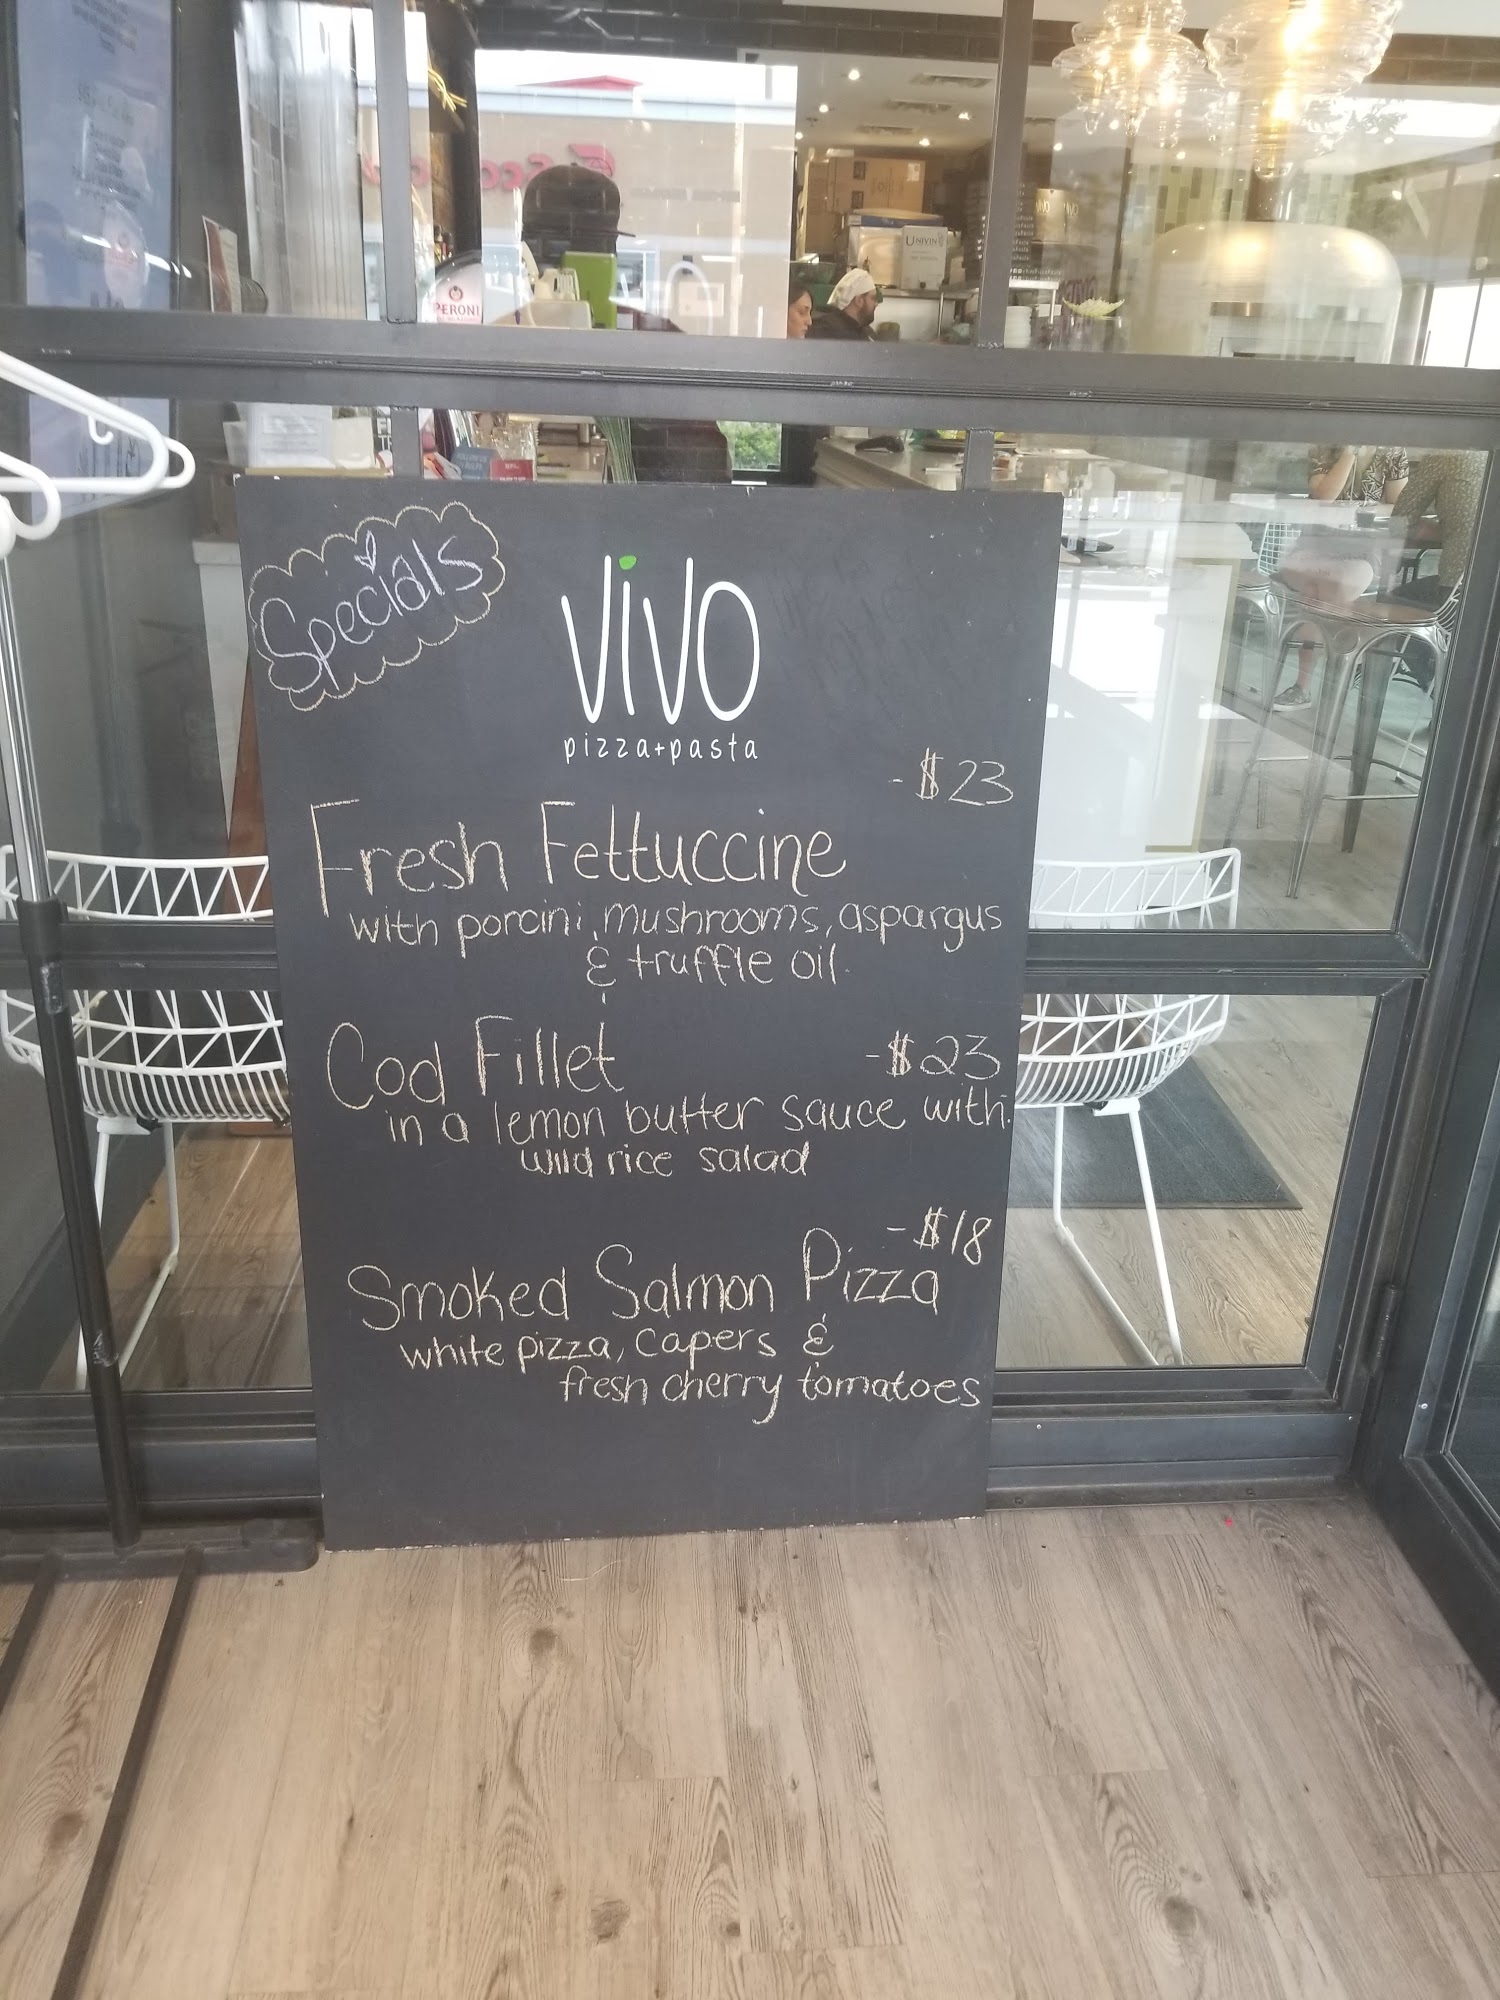 PERONI
UNIVIN
Specials
vivo
pizza+pasta
- $23
Fresh Fettuccine
with porcini, mushrooms, aspargus
& truffle oil.
Cod Fillet - $23
in a lemon butter sauce with
wild rice salad
- $18
Smoked Salmon Pizza
white pizza, capers &
fresh cherry tomatoes